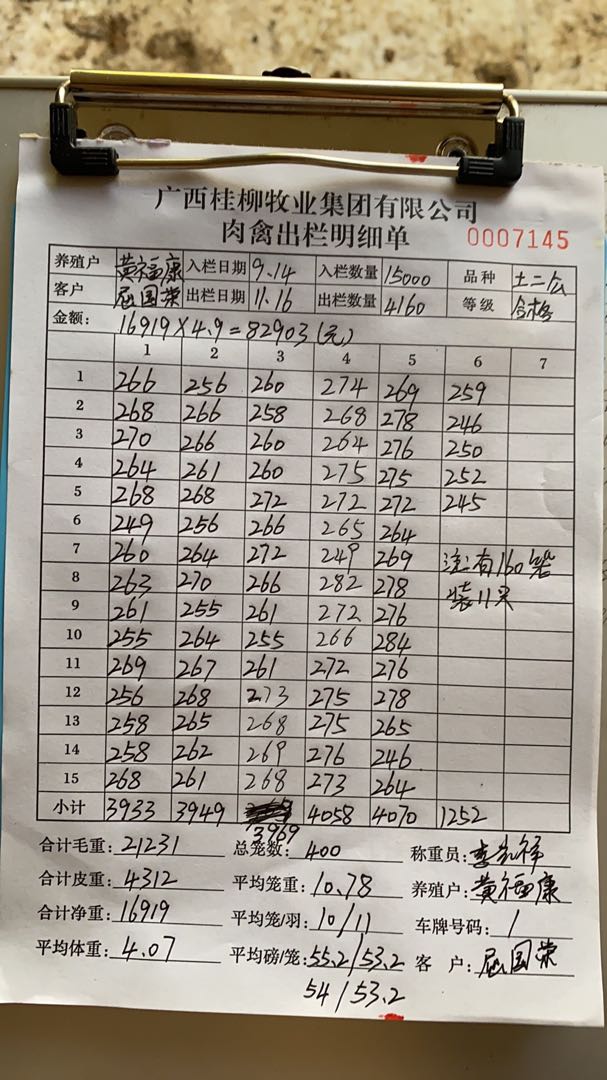 广西桂柳牧业集团有限公司
肉禽出栏明细单 0007145
养殖户 黄福康 入栏日期 9.14 入栏数量 15000 品种 土二公
客户 屈国荣 出栏日期 11.16 出栏数量 4160 等级 合格
金额: 16919×4.9=82903(元)
1 2 3 4 5 6 7
1 266 256 260 274 269 259
2 268 266 258 268 278 246
3 270 266 260 264 276 250
4 264 261 260 275 275 252
5 268 268 272 272 272 245
6 249 256 266 265 264
7 260 264 272 249 269 注:有160笼
8 263 270 266 282 278 装11只
9 261 255 261 272 276
10 255 264 255 266 284
11 269 267 261 272 276
12 256 268 273 275 278
13 258 265 268 275 265
14 258 262 269 276 246
15 268 261 268 273 264
小计 3933 3949 3969 4058 4070 1252
合计毛重: 21231 总笼数: 400 称重员:
合计皮重: 4312 平均笼重: 10.78 养殖户: 黄福康
合计净重: 16919 平均笼/羽: 10/11 车牌号码: 1
平均体重: 4.07 平均磅/笼: 55.2/53.2 客 户: 屈国荣
54/53.2